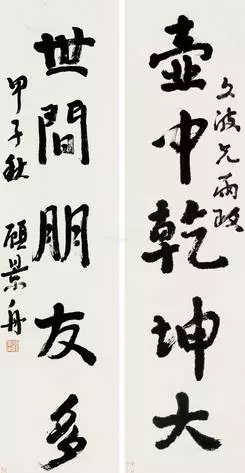 文波兄
壺中乾坤大
世間朋友多
甲子秋
顧景舟